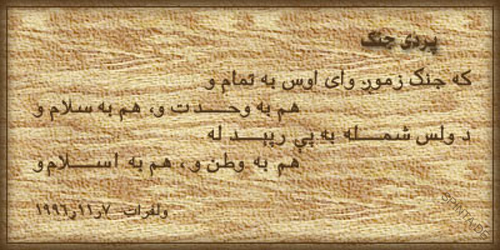 پردی جنګ
که جنګ زموږ وای اوس به تمام و
هم به وحدت و، هم به سلام و
د ولس شمله به یې رېبدله
هم به وطن و، هم به اسلام و
ولفرات ۷ر۱۱ر۱۹۹۶